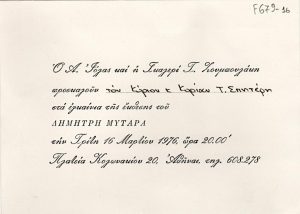 F679-16
Ὁ Α. Ἰόλας καί ἡ Γκαλερί Τ. Ζουμπουλάκη
προσκαλοῦν τὸν Κύριον κ Κυρίαν Τ. Σπητέρη
στά ἐγκαίνια τῆς ἐκθέσης τοῦ
ΔΗΜΗΤΡΗ ΜΥΤΑΡΑ
τήν Τρίτη 16 Μαρτίου 1976, ὥρα 20.00'
Πλατεῖα Κολωνακίου 20, Ἀθῆναι, τηλ. 608278